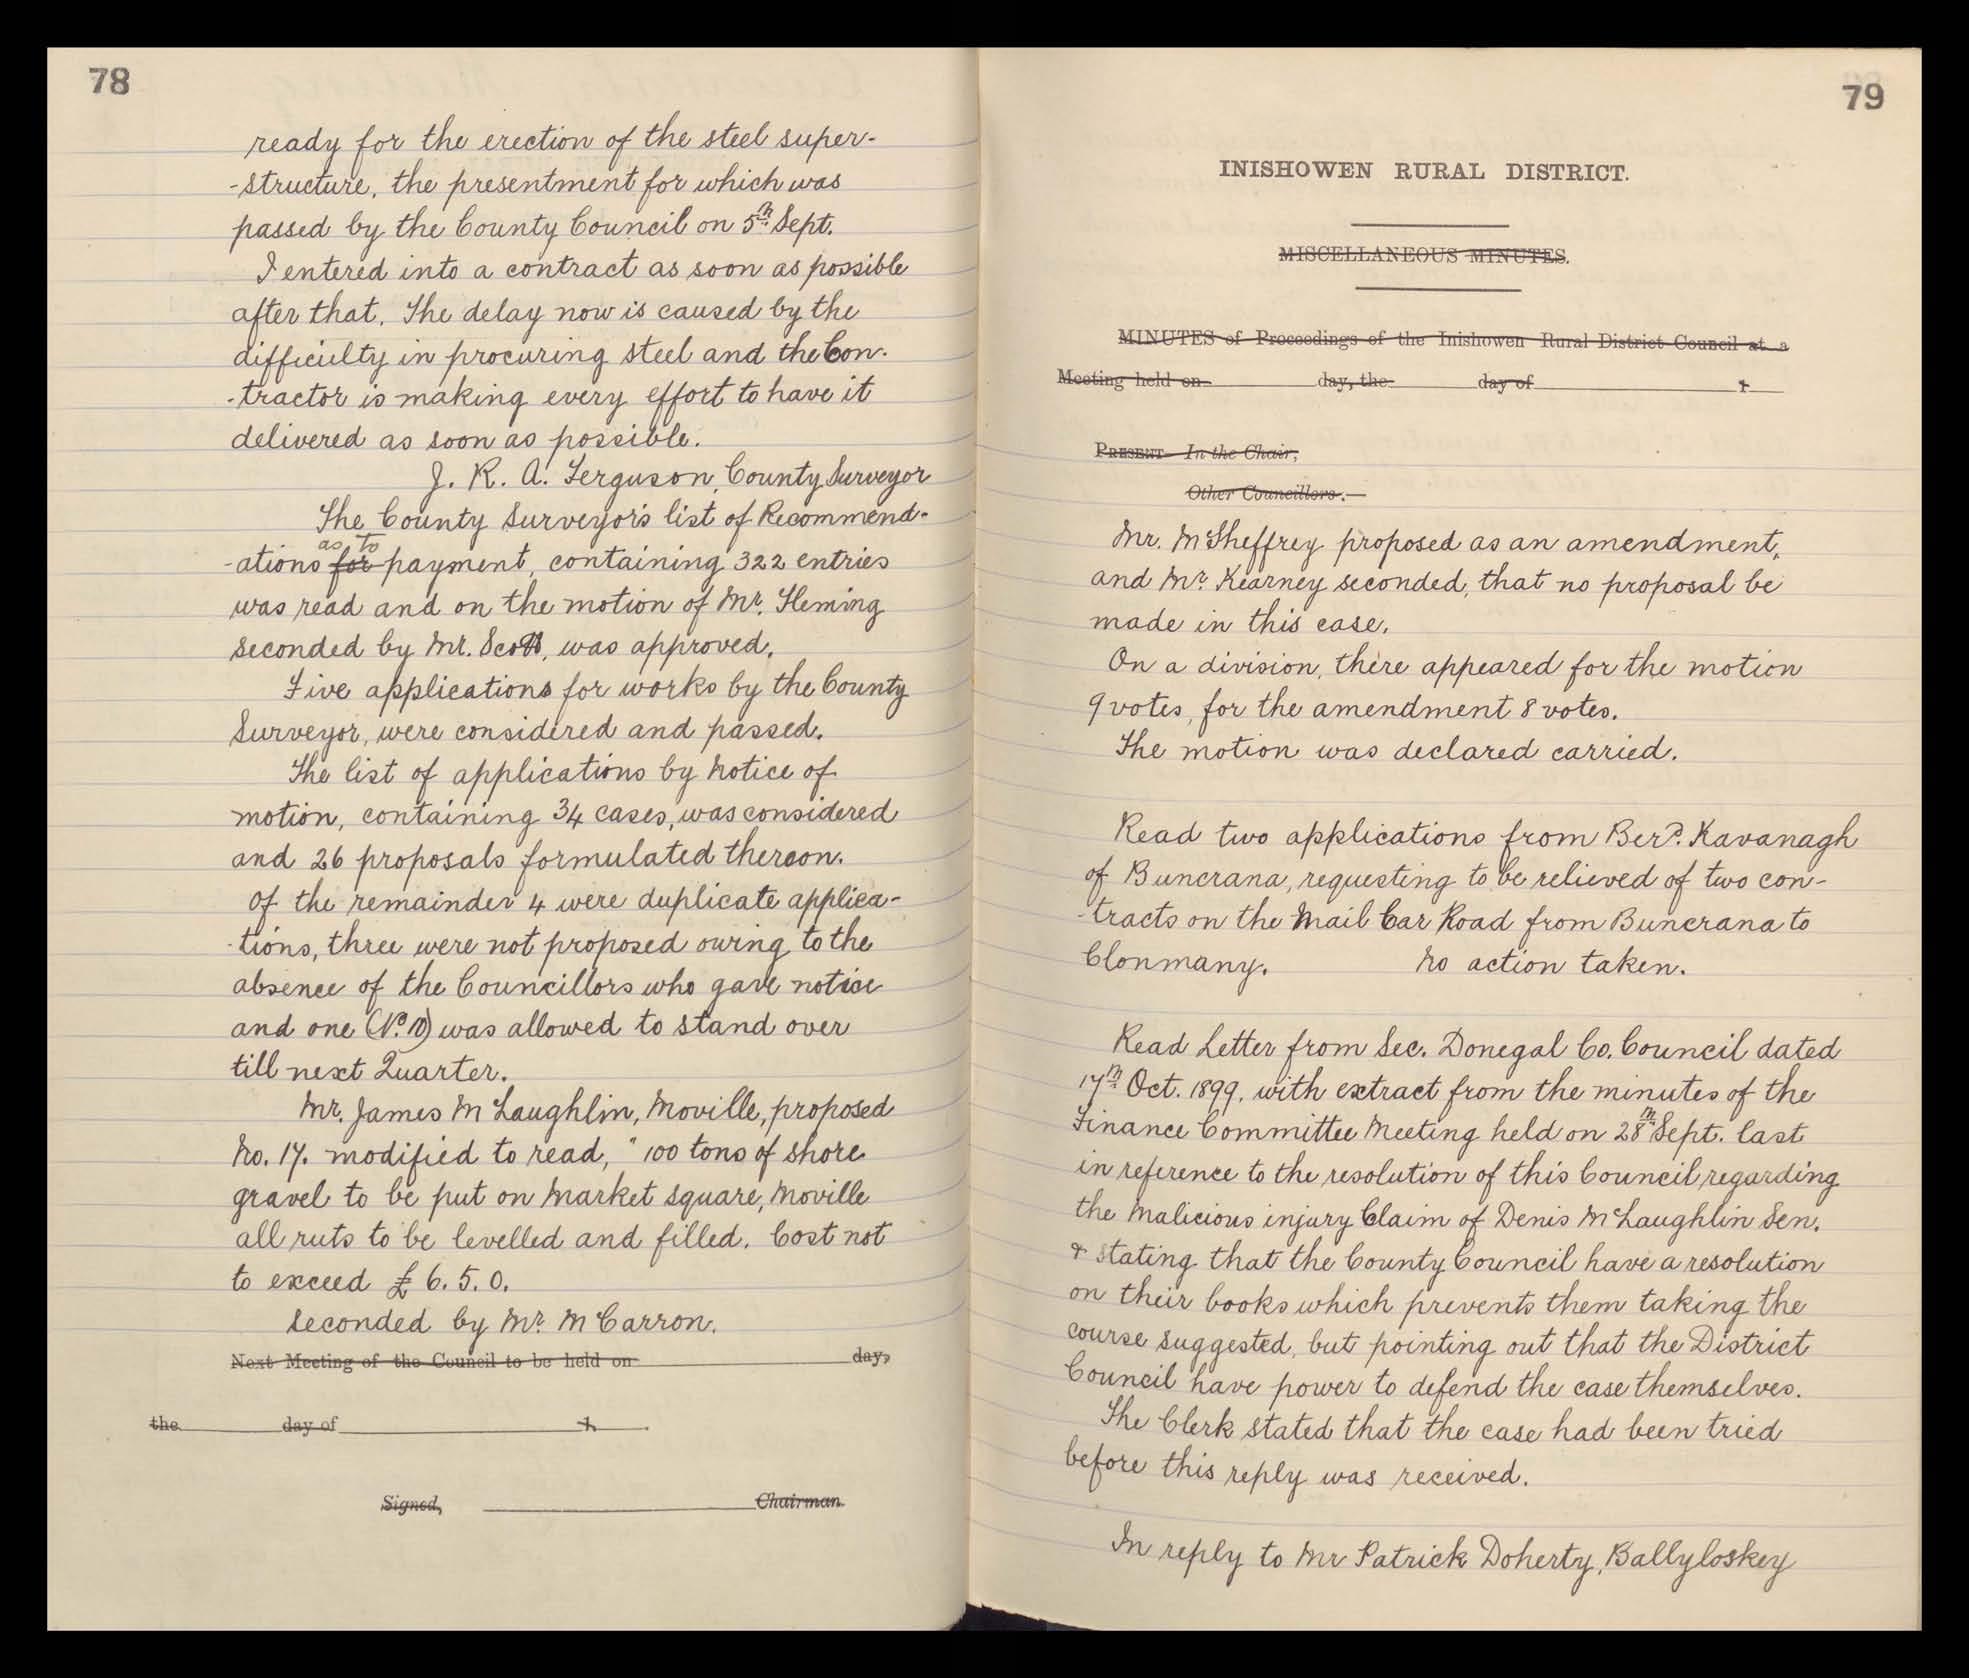 78
ready for the erection of the steel super-
-structure, the presentment for which was
passed by the County Council on 5th Sept.
I entered into a contract as soon as possible
after that. The delay now is caused by the
difficulty in procuring steel and the Con-
-tractor is making every effort to have it
delivered as soon as possible.
J. R. A. Ferguson, County Surveyor
The County Surveyor's list of Recommend-
as to
-ations for payment, containing 322 entries
was read and on the motion of Mr. Fleming
seconded by Mr. Scott, was approved.
Five applications for works by the County
Surveyor, were considered and passed.
The list of applications by Notice of
motion, containing 34 cases, was considered
and 26 proposals formulated thereon.
Of the remainder 4 were duplicate applica-
-tions, three were not proposed owing to the
absence of the Councillors who gave notice
and one (No. 10) was allowed to stand over
till next Quarter.
Mr. James McLaughlin, Moville, proposed
No. 17. modified to read, "100 tons of shore
gravel to be put on Market Square, Moville
all ruts to be levelled and filled. Cost not
to exceed £6.5.0.
Seconded by Mr. McCarron.
Next Meeting of the Council to be held on day,
the day of 1 .
Signed, Chairman.
79
INISHOWEN RURAL DISTRICT.
MISCELLANEOUS MINUTES.
MINUTES of Proceedings of the Inishowen Rural District Council at a
Meeting held on day, the day of 1
PRESENT—In the Chair,
Other Councillors.—
Mr. McSheffrey proposed as an amendment,
and Mr. Kearney seconded, that no proposal be
made in this case.
On a division, there appeared for the motion
9 votes, for the amendment 8 votes.
The motion was declared carried.
Read two applications from Berd. Kavanagh
of Buncrana, requesting to be relieved of two con-
-tracts on the Mail Car Road from Buncrana to
Clonmany. No action taken.
Read Letter from Sec. Donegal Co. Council dated
17th Oct. 1899, with extract from the minutes of the
Finance Committee Meeting held on 28th Sept. last
in reference to the resolution of this Council regarding
the Malicious injury Claim of Denis McLaughlin Sen.
& stating that the County Council have a resolution
on their books which prevents them taking the
course suggested, but pointing out that the District
Council have power to defend the case themselves.
The Clerk stated that the case had been tried
before this reply was received.
In reply to Mr Patrick Doherty, Ballyloskey